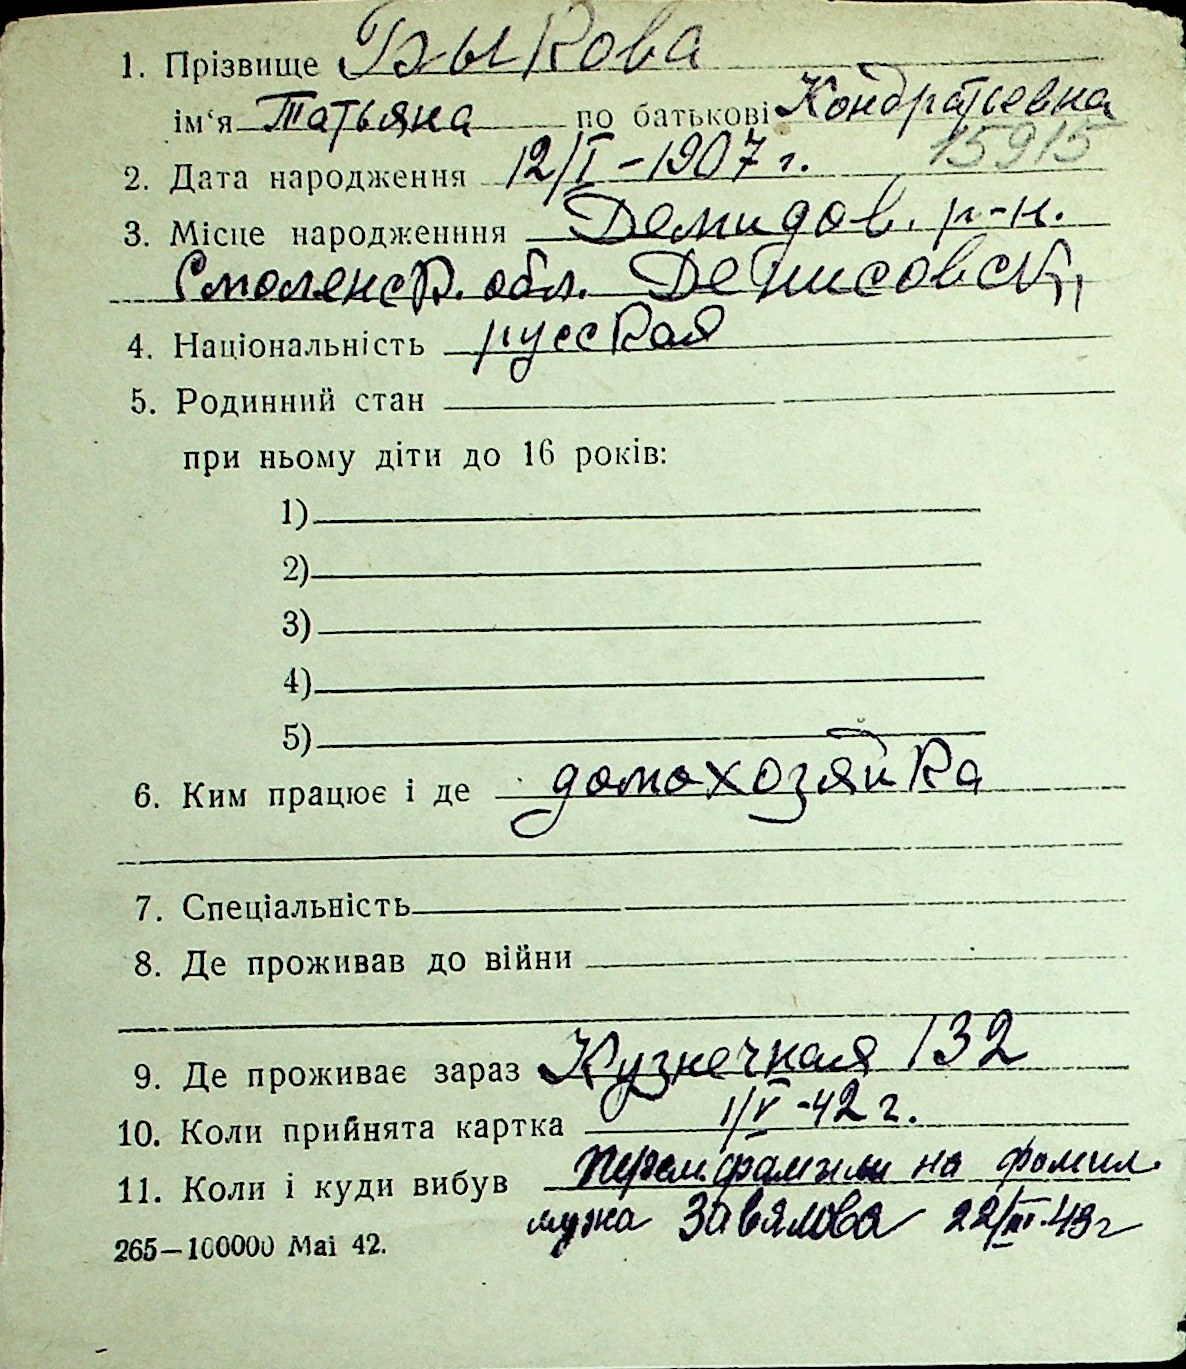 1. Прізвище Быкова
ім‘я Татьяна по батькові Кондратьевна
15915
2. Дата народження 12/I – 1907 г.
3. Місце народженння Демидов. р-н.
Смоленск. обл. Денисовск,
4. Національність русская
5. Родинний стан
при ньому діти до 16 років:
1)
2)
3)
4)
5)
6. Ким працює і де домохозяйка
7. Спеціальність
8. Де проживав до війни
9. Де проживає зараз Кузнечная 132
10. Коли прийнята картка 1/V -42 г.
11. Коли і куди вибув на фамил.
мужа Завялова 43 г
265—100000 Mai 42.